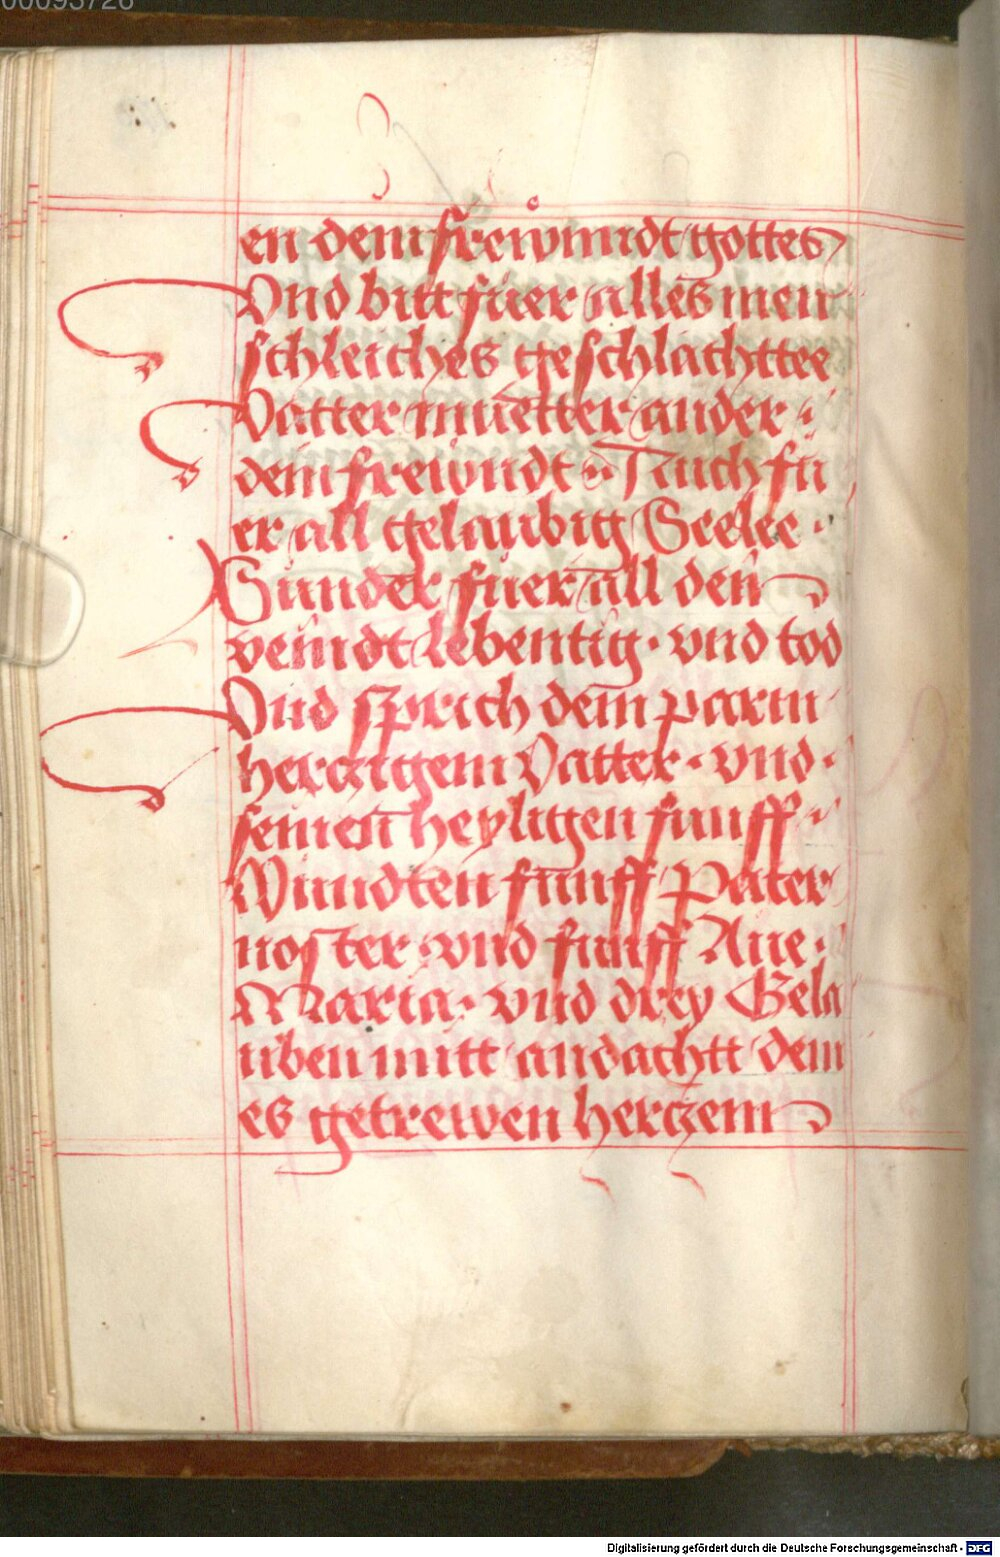 00093726
en dein freiwnndt gottes
Vnd bitt füer alles men
schleiches geschlachttee
Vatter muetter ander
dein freiwndt Auch fü
er all gelaubig Seelee ·
Sünder füer all dein
veindt lebenttig · vnd tod
Vnd sprich dem parm
herczigem Vatter · vnd ·
seinen heyligen fünff
Wundten fünff Pater
noster · vnd fünff Aue ·
Maria · vnd drey Gela
uben mitt andachtt dein
es getrewen herczenn
Digitalisierung gefördert durch die Deutsche Forschungsgemeinschaft - DFG